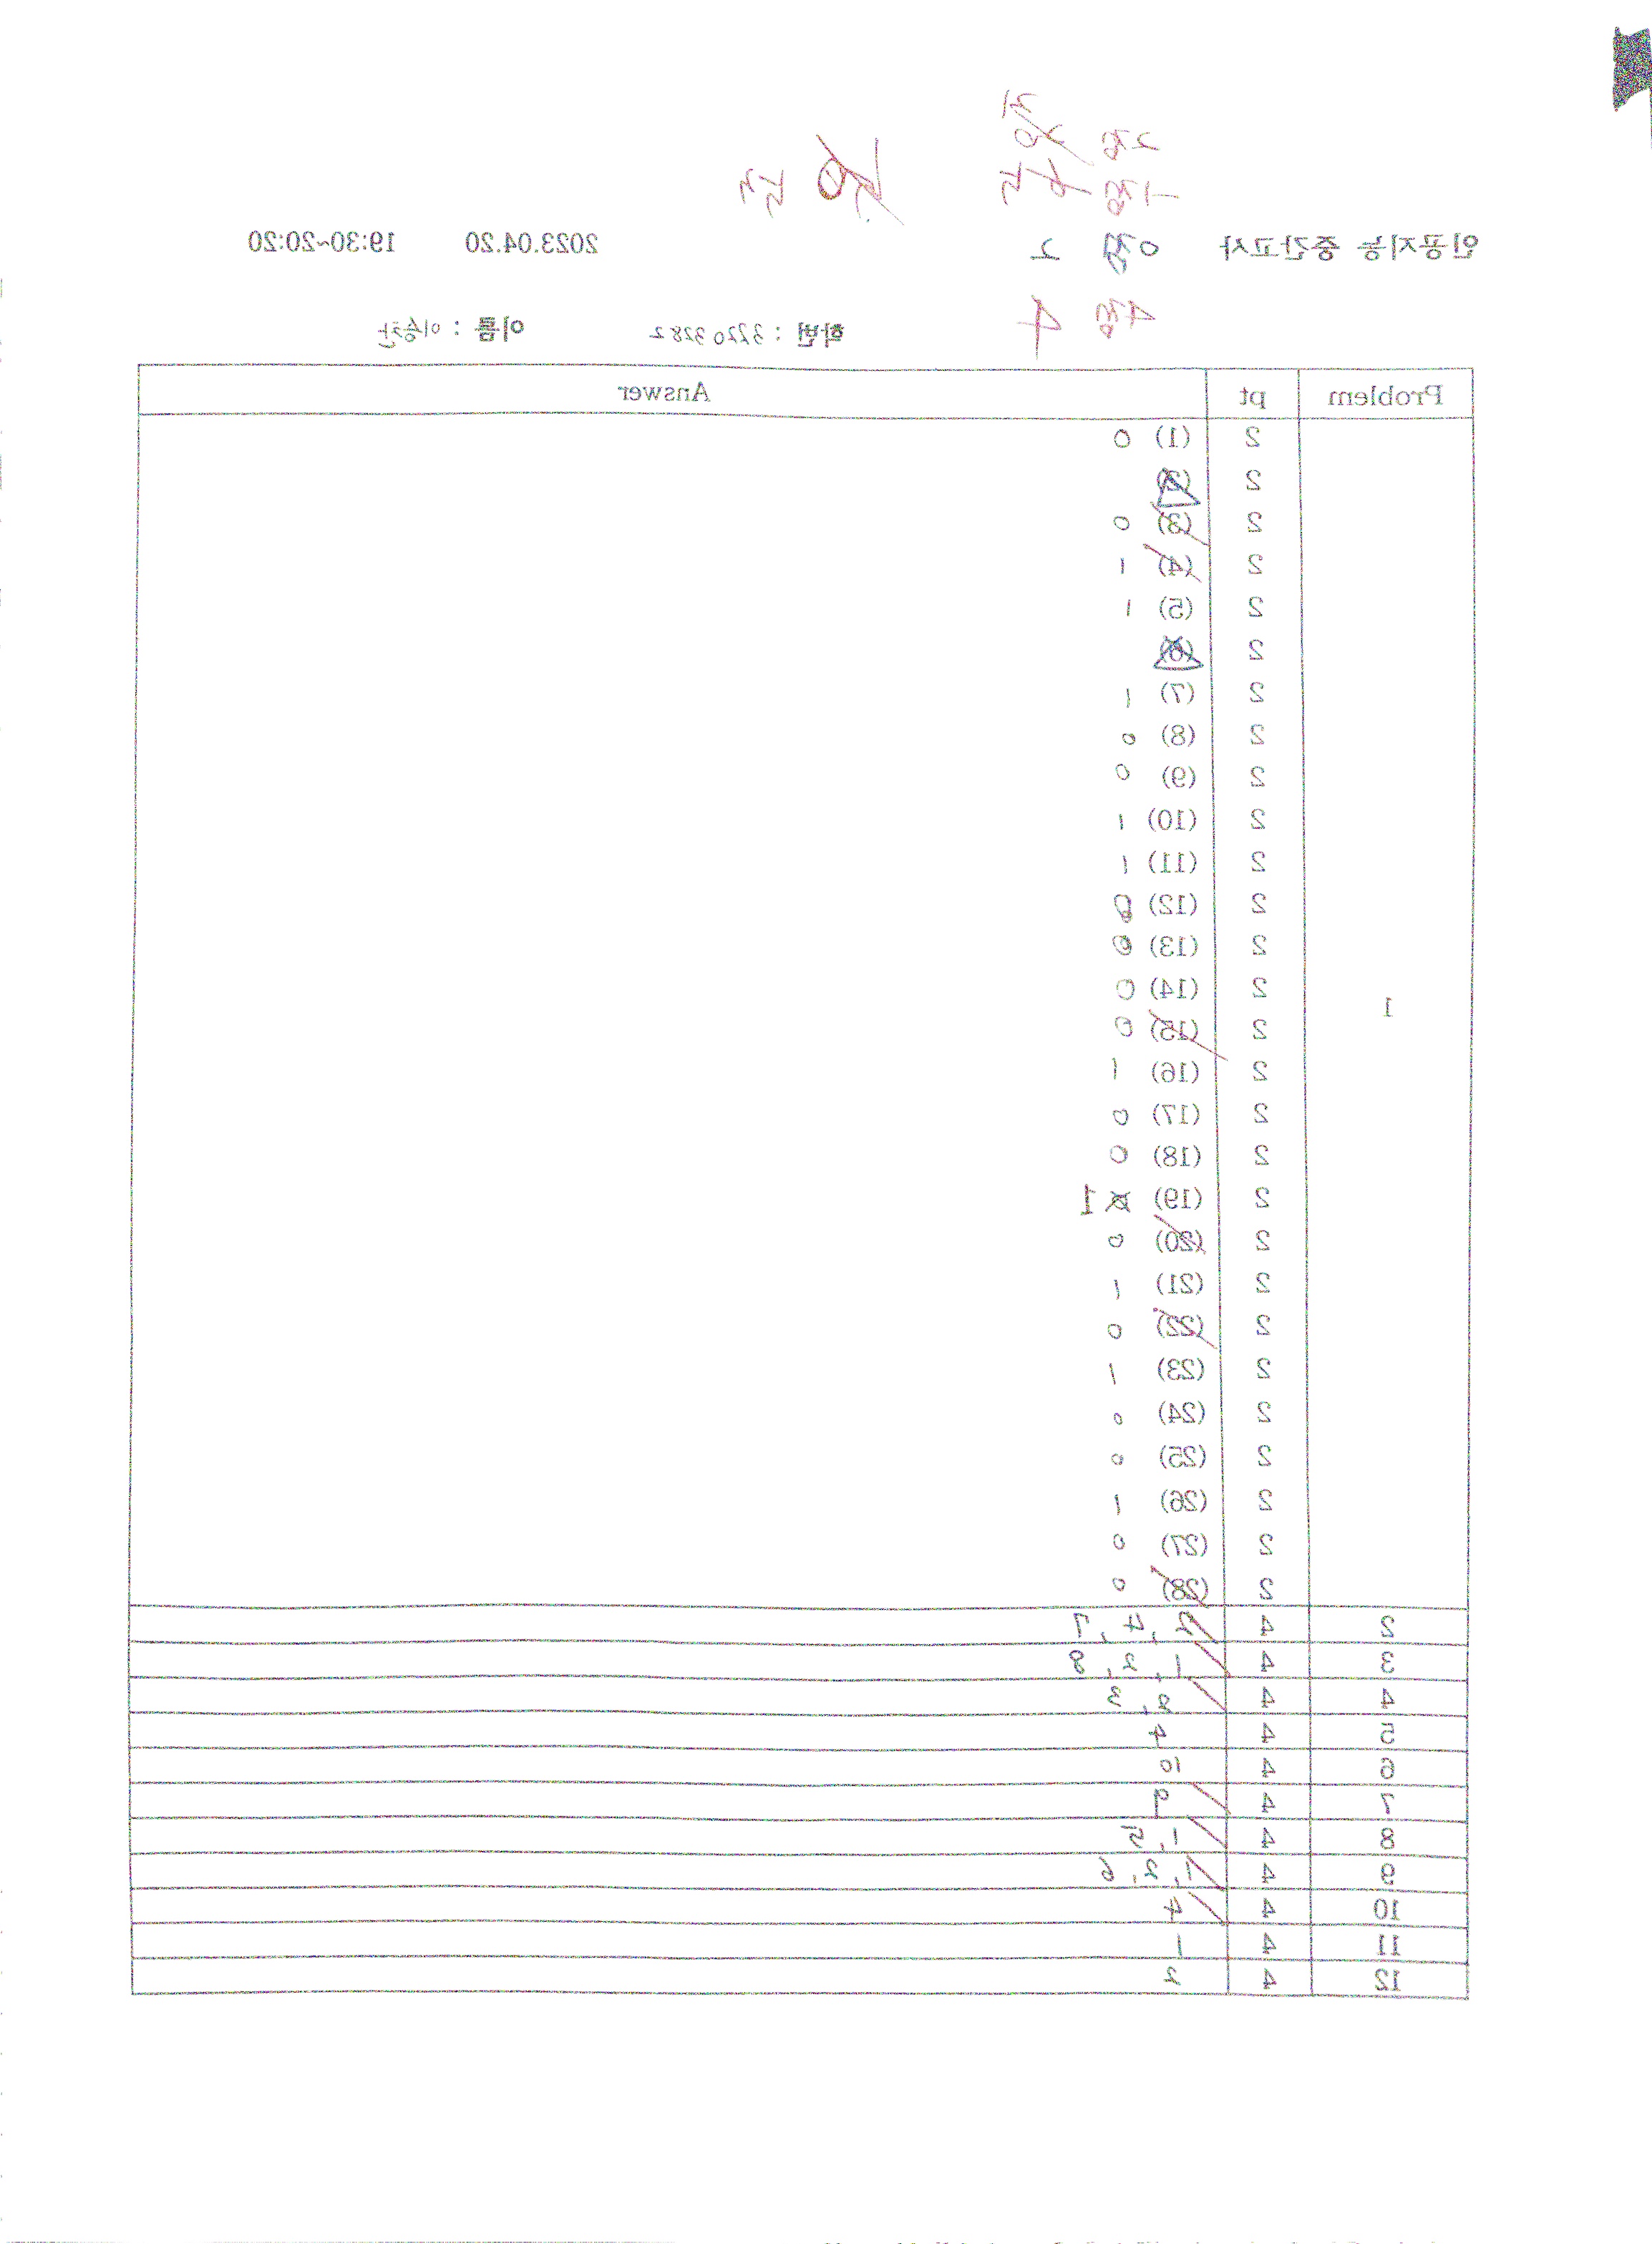 인공지능 중간고사 2023.04.20 19:30~20:20
학번 : 32203282 이름 : 이승찬
Problem pt Answer
1
2 (1) 0
2 (2)
2 (3) 0
2 (4) 1
2 (5) 1
2 (6)
2 (7) 1
2 (8) 0
2 (9) 0
2 (10) 1
2 (11) 1
2 (12) 0
2 (13) 0
2 (14) 0
2 (15) 0
2 (16) 1
2 (17) 0
2 (18) 0
2 (19) 1
2 (20) 0
2 (21) 1
2 (22) 0
2 (23) 1
2 (24) 0
2 (25) 0
2 (26) 1
2 (27) 0
2 (28) 0
2 4 2, 4, 7
3 4 1, 2, 8
4 4 2, 3
5 4 4
6 4 10
7 4 9
8 4 1, 5
9 4 1, 2, 6
10 4 4
11 4 1
12 4 2